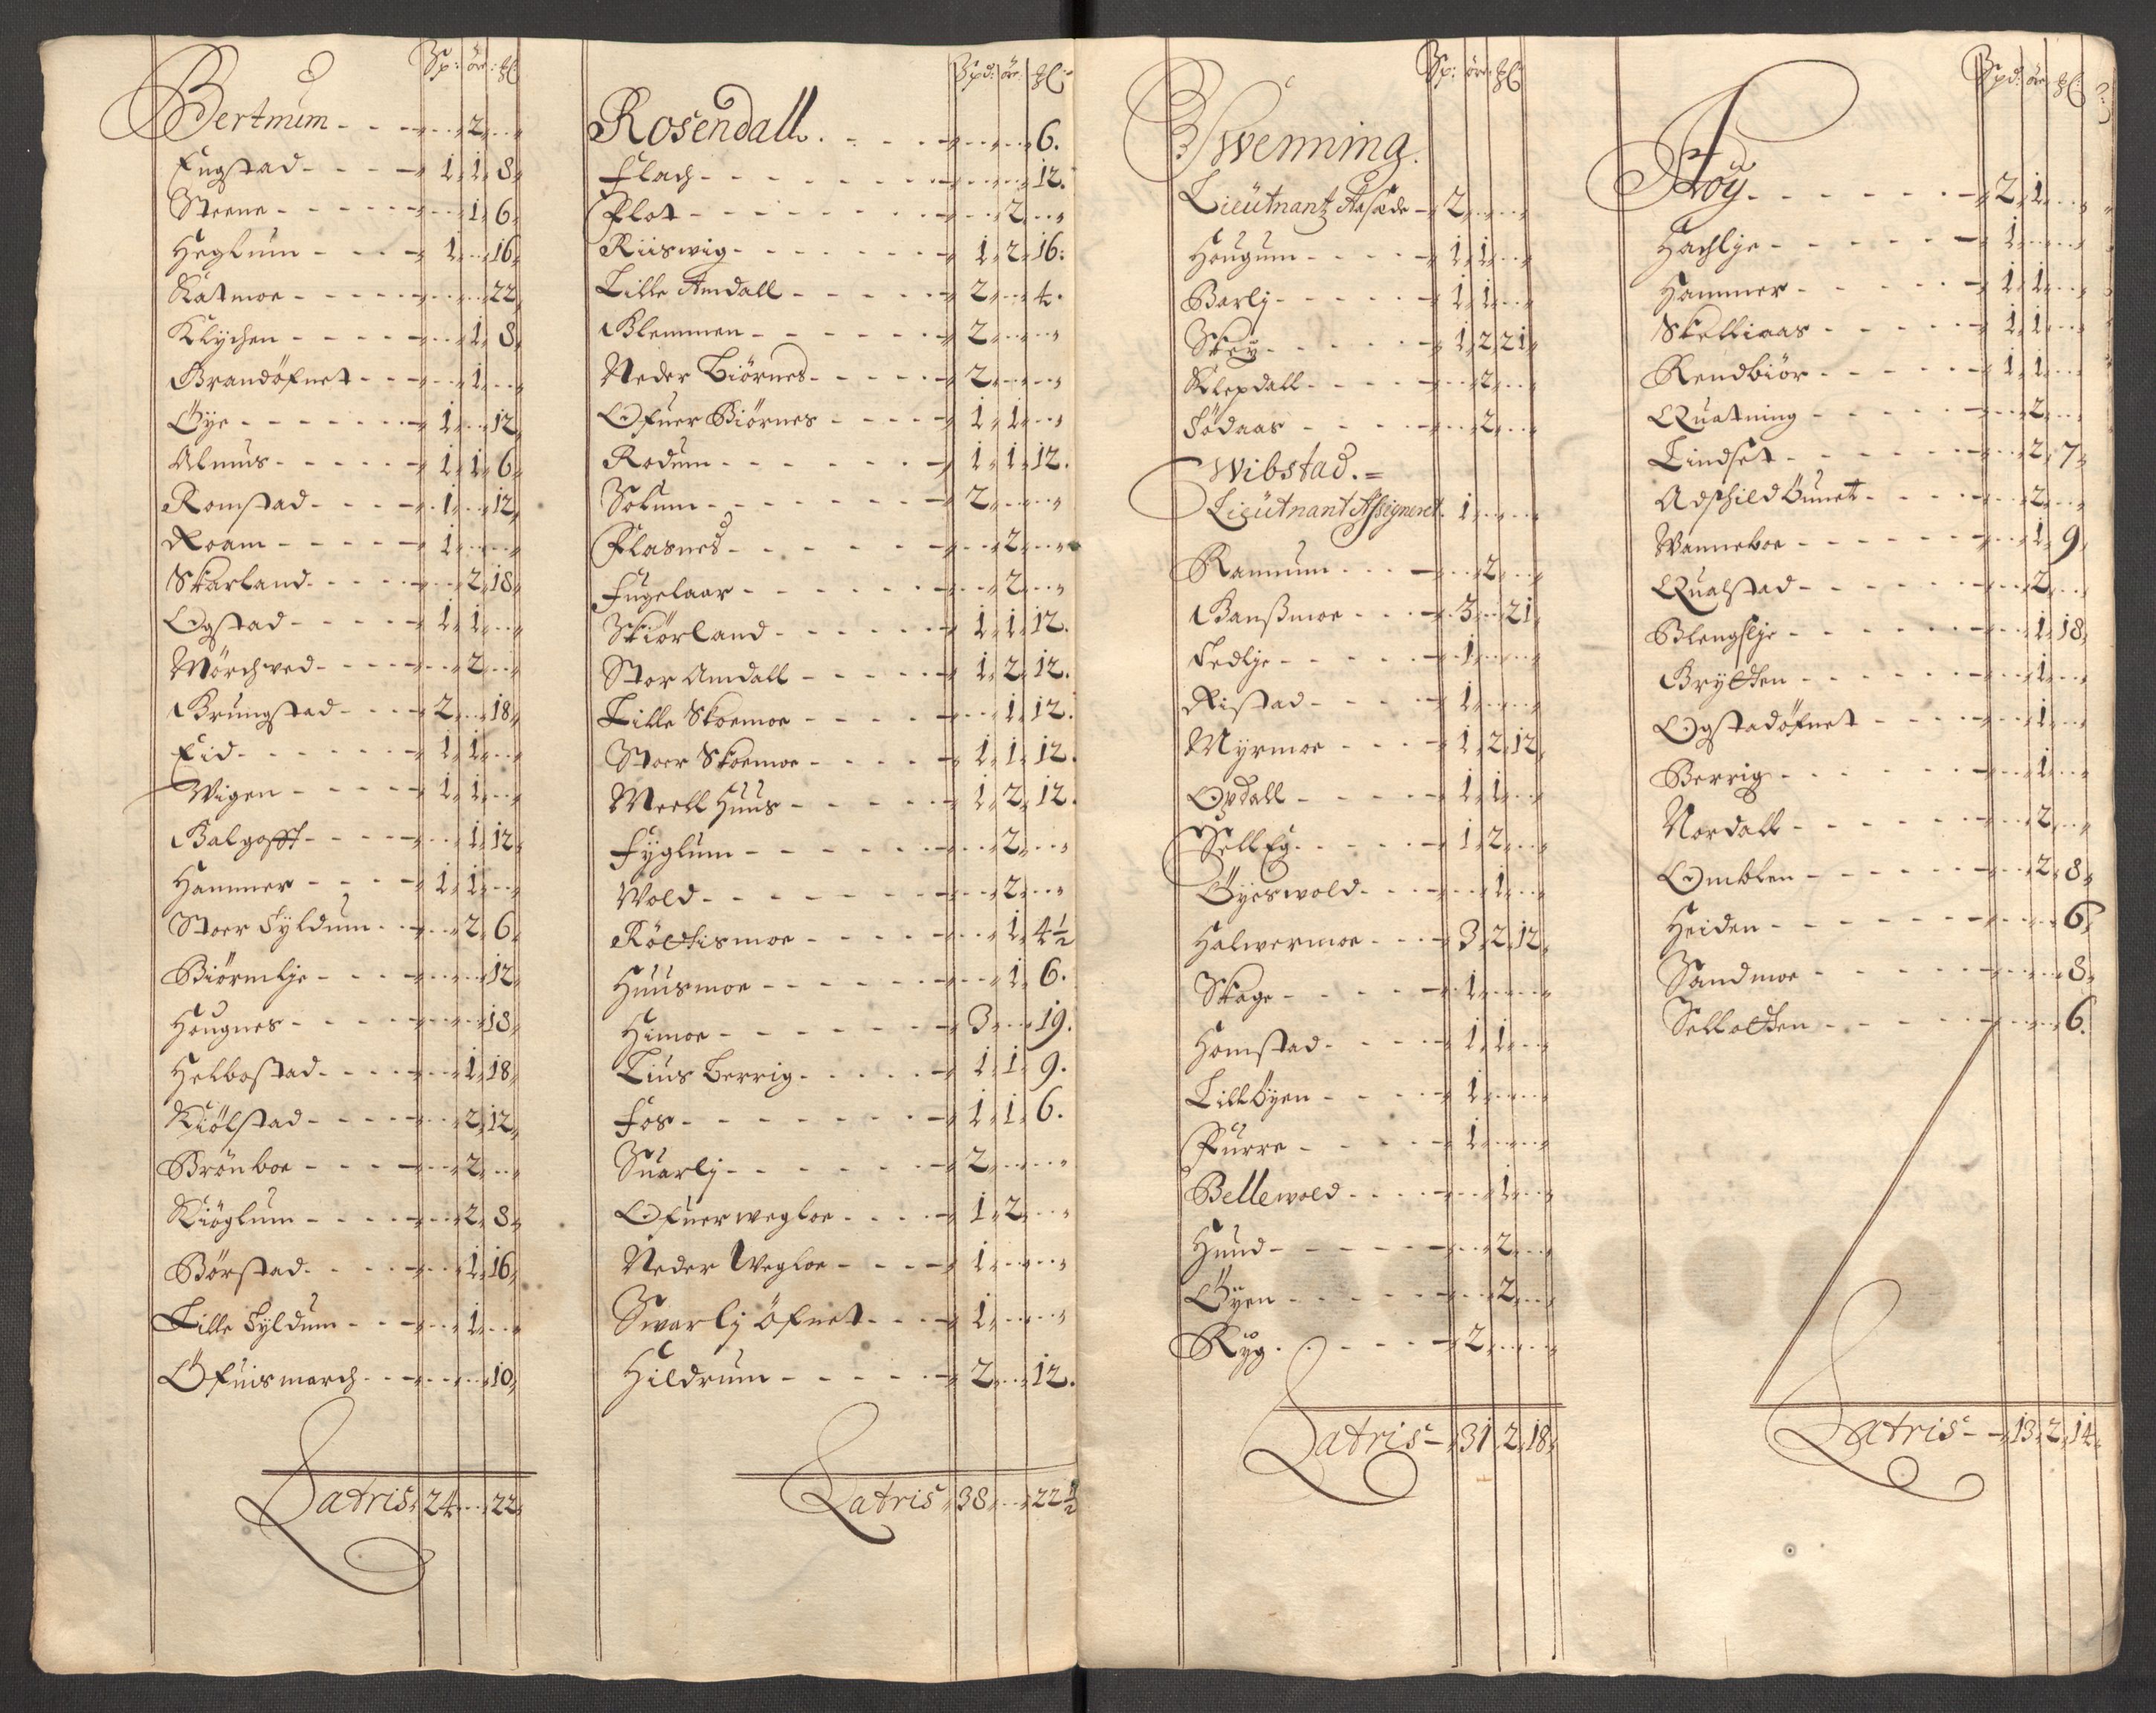 Sp: ör: 
Bertnum - - - 2
Fugstad - - - 1 1 8
Steene - - - 1 6
Heglum - - - 1 16
Katmoe - - - 22
Klychen - - - 1 8
Brandöfnet - - - 1
Öye - - - 1 12
Almus - - - 1 1 6
Romstad - - - 1 12
Roam - - - 1
Skarland - - - 2 18
Ogstad - - - 1 1
Mörchwed - - - 2
Brungstad - - - 2 18
Eid - - - 1 1
Wigen - - - 1 1
Galgofft - - - 1 12
Hammer - - - 1 1
Stoer Fyldum - - - 2 6
Biörmlje - - - 12
Hougnes - - - 18
Helbostad - - - 1 18
Kiölstad - - - 2 12
Brönboe - - - 2
Kiöglum - - - 2 8
Börstad - - - 1 16
Lille Fyldum - - - 1
Öfuismarch - - - 10
Latris 24 22
Spd: ör:
Rosendall - - - 6.
Flach - - - 12.
Flot - - - 2
Riiswig - - - 1 2 16:
Lille Amdall - - - 2 4.
Glemmen - - - 2
Neder Biörnes - - - 2
Ofuer Biörnes - - - 1 1
Rodum - - - 1 1 12.
Solum - - - 2
Flasnes - - - 2
Fugelaar - - - 2
Skiörland - - - 1 1 12.
Stor Amdall - - - 1 2 12.
Lille Skoemoe - - - 1 12.
Stoer Skoemoe - - - 1 1 12.
Meell Huus - - - 1 2 12.
Fyglum - - - 2
Wold - - - 2
Röttismoe - - - 1 4½
Huusmoe - - - 1 6.
Himoe - - - 3 19.
Lius Berrig - - - 1 1 9.
Fos - - - 1 1 6.
Suarlj - - - 2
Ofuer wegloe - - - 1 2
Neder Wegloe - - - 1
Swarlj öfnet - - - 1
Hildrum - - - 2 12.
Latris 38 22½
Sp: ör:
Swenning.
Lieütnantz Aasæde - 2
Hougum - - - 1 1
Barlj - - - 1 1
Skey - - - 1 2 21
Klepdall - - - 2
Födaas - - - 2
Wibstad.=
Lieütnant Assigneret. 1
Rannum - - - 2
Ganßmoe - - - 3 21
Fedlje - - - 1
Ristad - - - 1
Myrmoe - - - 1 2 12
Opdall - - - 1 1
Sell Eg - - - 1 2
Öyeswold - - - 1
Halwermoe - - - 3 2 12
Skage - - - 1
Homstad - - - 1 1
Lill Öyen - - - 1
Furre - - - 1
Bellewold - - - 1
Hund - - - 2
Öyen - - - 2
Ryg - - - 2
Latris - 31 2 18
Spd: ör:
Höy - - - 2 1
Hachlje - - - 1
Hammer - - - 1 1
Skelliaas - - - 1 1
Rendbiör - - - 1 1
Quatning - - - 2
Lindset - - - 2 7
Adshild Öunet - - - 2
Wanneboe - - - 1 9
Qualstad - - - 2
Blengslje - - - 1 18
Brytten - - - 1
Ogstadöfnet - - - 1
Berrig - - - 1
Nordall - - - 2
Omblen - - - 2 8
Heiden - - - 6
Sandmoe - - - 8
Sellotten - - - 6.
Latris - - 13 2 14